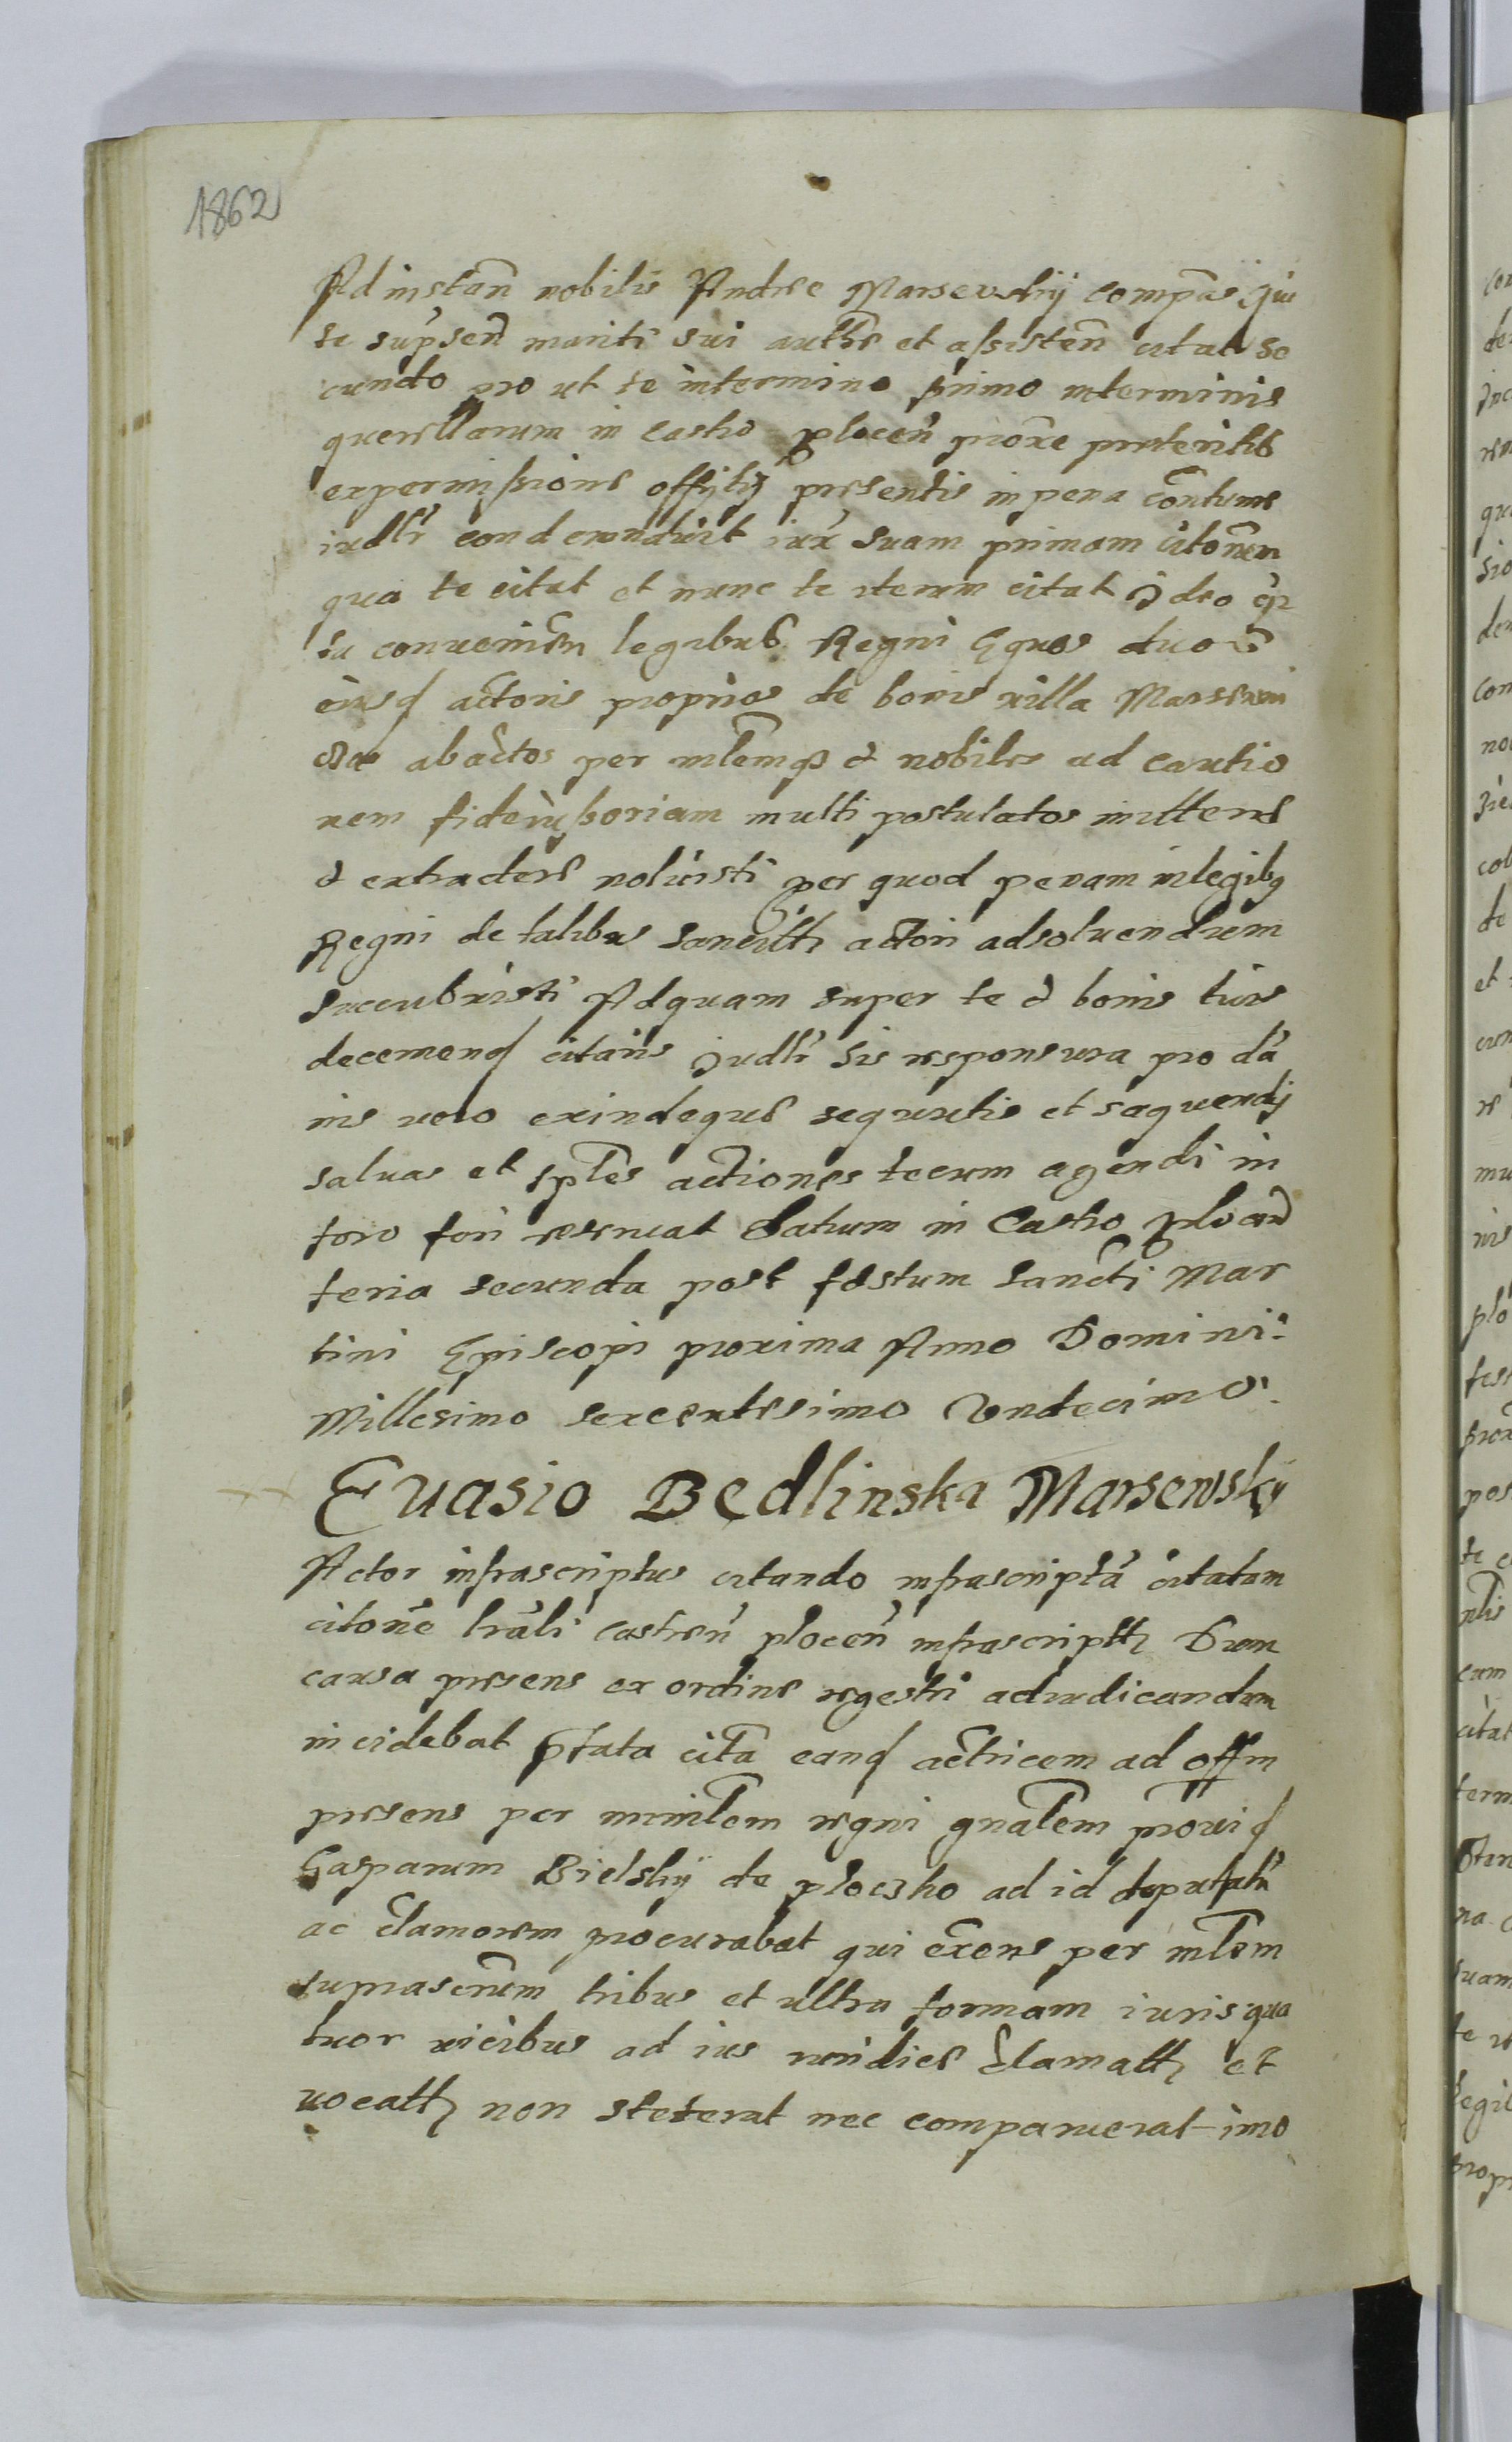 1862
Ad instan nobilis Andree Marsewskij compās qui
te supsen mariti sui authe et assisten citat se
cundo pro ut te intermino primo interminis
querellarum in Castro plocen proxe preteritis
expermissione offitij presentis in pena contume
iudlr condemnavit iux suam primam citonem
qua te citat et nunc te iterum citat Ideo qr
tu convenien legibus Regni Equos duos
eiusd actoris proprios de bonis villa Marsewo
abactos per mlem et nobiles ad cautio
nem fideiussoriam multi postulatos mittere
et extradere noluisti per quod penam inlegibq
Regni de talibus sancitt actori adsoluendum
succubuisti Adquam super te et bonis tuis
decernend citaris Iudlr sis responsura pro da
nis vero exindeque sequutis et sequendij
saluas et sples actiones tecum agendi in
foro fori reseruat Datum in Castro plocen
feria secunda post festum sancti Mar
tini Episcopi proxima Anno Domini
Millesimo sexcentesimo Vndecimo.
Euasio Bedlinska Marsewskij
Actor infrascriptus citando infrascripta citatam
citone lrali castren plocen infrascriptt Dum
causa presens ex ordine regestri adiudicandum
incidebat pfata cita eand actricem ad offm
presens per ministlem regni gnalem prouid
Gasparum Bielskij de ploczko ad id deputatu
ac clamorem procurabat qui exens per mlem
suprascrum tribus et ultra formam iuris qua
tuor vicibus ad ius iuridice clamatt et
vocatt non steterat nec comparuerat imo